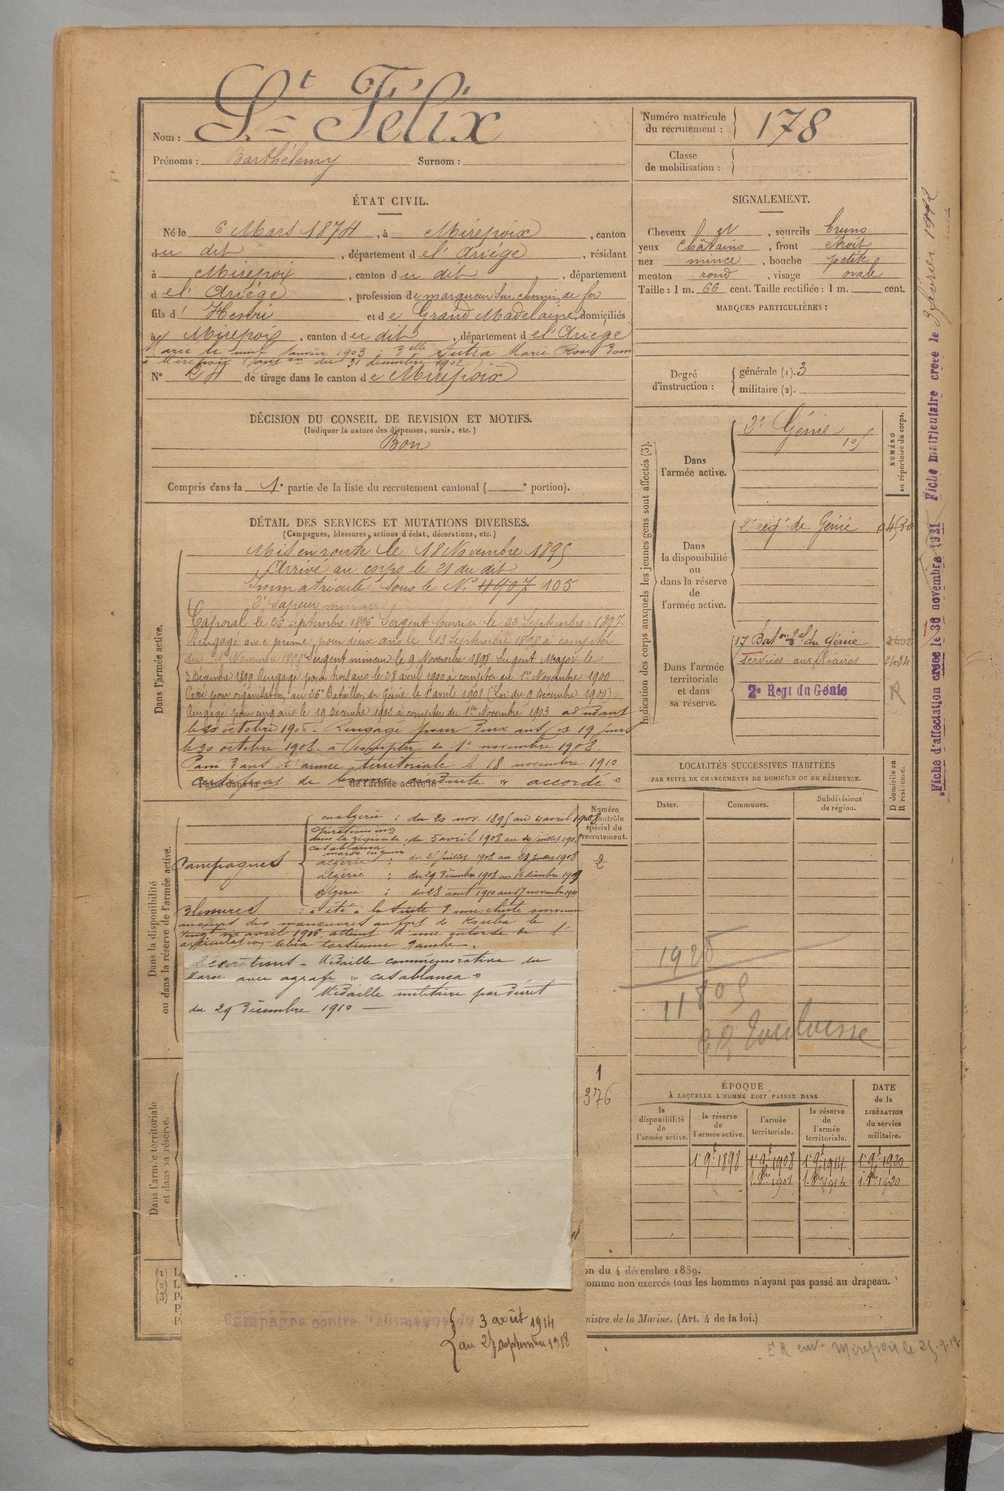 Nom : St Félix
Prénoms : Barthélemy Surnom :
Numéro matricule du recrutement : 178
Classe de mobilisation :
ÉTAT CIVIL.
Né le 6 Mars 1874, à Mirepoix, canton
du dit, département de l'Ariège, résidant
à Mirepoix, canton du dit, département
de l'Ariège, profession de marqueur sur chemin de fer
fils d' Henri et de Grand Madelaine, domiciliés
à Mirepoix, canton du dit, département de l'Ariège
janvier 1903 à Marie Rose
Mirepoix du 31 décembre 1902
N° 24 de tirage dans le canton de Mirepoix
SIGNALEMENT.
Cheveux et, sourcils bruns
yeux châtains, front étroit
nez mince, bouche petite
menton rond, visage ovale
Taille : 1 m. 66 cent. Taille rectifiée : 1 m. cent.
MARQUES PARTICULIÈRES :
Degré d'instruction : générale (1). 3
militaire (2).
DÉCISION DU CONSEIL DE REVISION ET MOTIFS.
(Indiquer la nature des dispenses, sursis, etc.)
Bon
Compris dans la 1e partie de la liste du recrutement cantonal ( e portion).
DÉTAIL DES SERVICES ET MUTATIONS DIVERSES.
(Campagnes, blessures, actions d'éclat, décorations, etc.)
Dans l'armée active.
Mis en route le 18 Novembre 1895
Arrivé au corps le 21 du dit
Immatriculé sous le N° 4907 105
2e Sapeur mineur
Caporal le 26 septembre 1896 Sergent fourrier le 20 Septembre 1897
Rengagé avec prime pour deux ans le 13 Septembre 1898 à compter
du Novembre 1898 Sergent mineur le 9 Novembre 1898. Sergent Major le
3 Décembre 1899 Rengagé pour trois ans le 29 avril 1900 à compter du 1er Novembre 1900
Passé pour organisation au 26e Bataillon du Génie le 1er avril 1901 (Loi du 9 Décembre 1900).
Rengagé pour cinq ans le 19 Décembre 1902 à compter du 1er Novembre 1903 adjudant
le 20 octobre 1905 - Rengagé pour deux ans et 19 jours
le 30 octobre 1908 à compter du 1er novembre 1908
Passé dans l'armée territoriale le 18 novembre 1910
Passé dans la de l'armée active le
certificat de bonne conduite "accordé"
Indication des corps auxquels les jeunes gens sont affectés (3).
NUMÉRO au répertoire du corps.
Dans l'armée active.
2e Génie
105
Dans la disponibilité ou dans la réserve de l'armée active.
2e régt de Génie
Dans l'armée territoriale et dans sa réserve.
17 Baton tal du Génie
Services auxiliaires
2e Regt du Génie
Fiche d'affectation créée le 30 novembre 1921 Fiche matriculaire créée le
LOCALITÉS SUCCESSIVES HABITÉES
PAR SUITE DE CHANGEMENTS DE DOMICILE OU DE RÉSIDENCE.
Dates. Communes. Subdivisions de région. D domicile ou R résidence.
Dans la disponibilité ou dans la réserve de l'armée active.
Numéro au contrôle spécial du recrutement.
2
Campagnes
en algérie : du 20 nov. 1895 au 4 avril 1908
dans la région : du 5 avril 1908 au 24 juillet 1908
casablanca
algérie
algérie : du 29 Décembre 1908 au décembre 1909
algérie : du 28 août 1910 au 17 novembre 1910
Blessures : a été à la suite d'une chute survenue
au cours des manœuvres au fort de
avril 1905 atteint d'une entorse de l'
articulation tibia tarsienne gauche.
Décorations - Médaille commémorative du
Maroc avec agrafe "casablanca"
Médaille militaire par décret
du 29 Décembre 1910
1928
11805
CR Toulouse
Dans l'armée territoriale et dans sa réserve.
1
376
ÉPOQUE
À LAQUELLE L'HOMME DOIT PASSER DANS
la disponibilité de l'armée active. la réserve de l'armée active. l'armée territoriale. la réserve de l'armée territoriale. DATE de la LIBÉRATION du service militaire.
1er 9bre 1898 1er 9bre 1908 1er 9bre 1914 1er 9bre 1920
(1) L
(2) L
(3) P
P
on du 4 décembre 1889.
omme non exercés tous les hommes n'ayant pas passé au drapeau.
nistre de la Marine. (Art. 4 de la loi.)
Campagne contre l'Allemagne du
3 août 1914
au septembre 1918